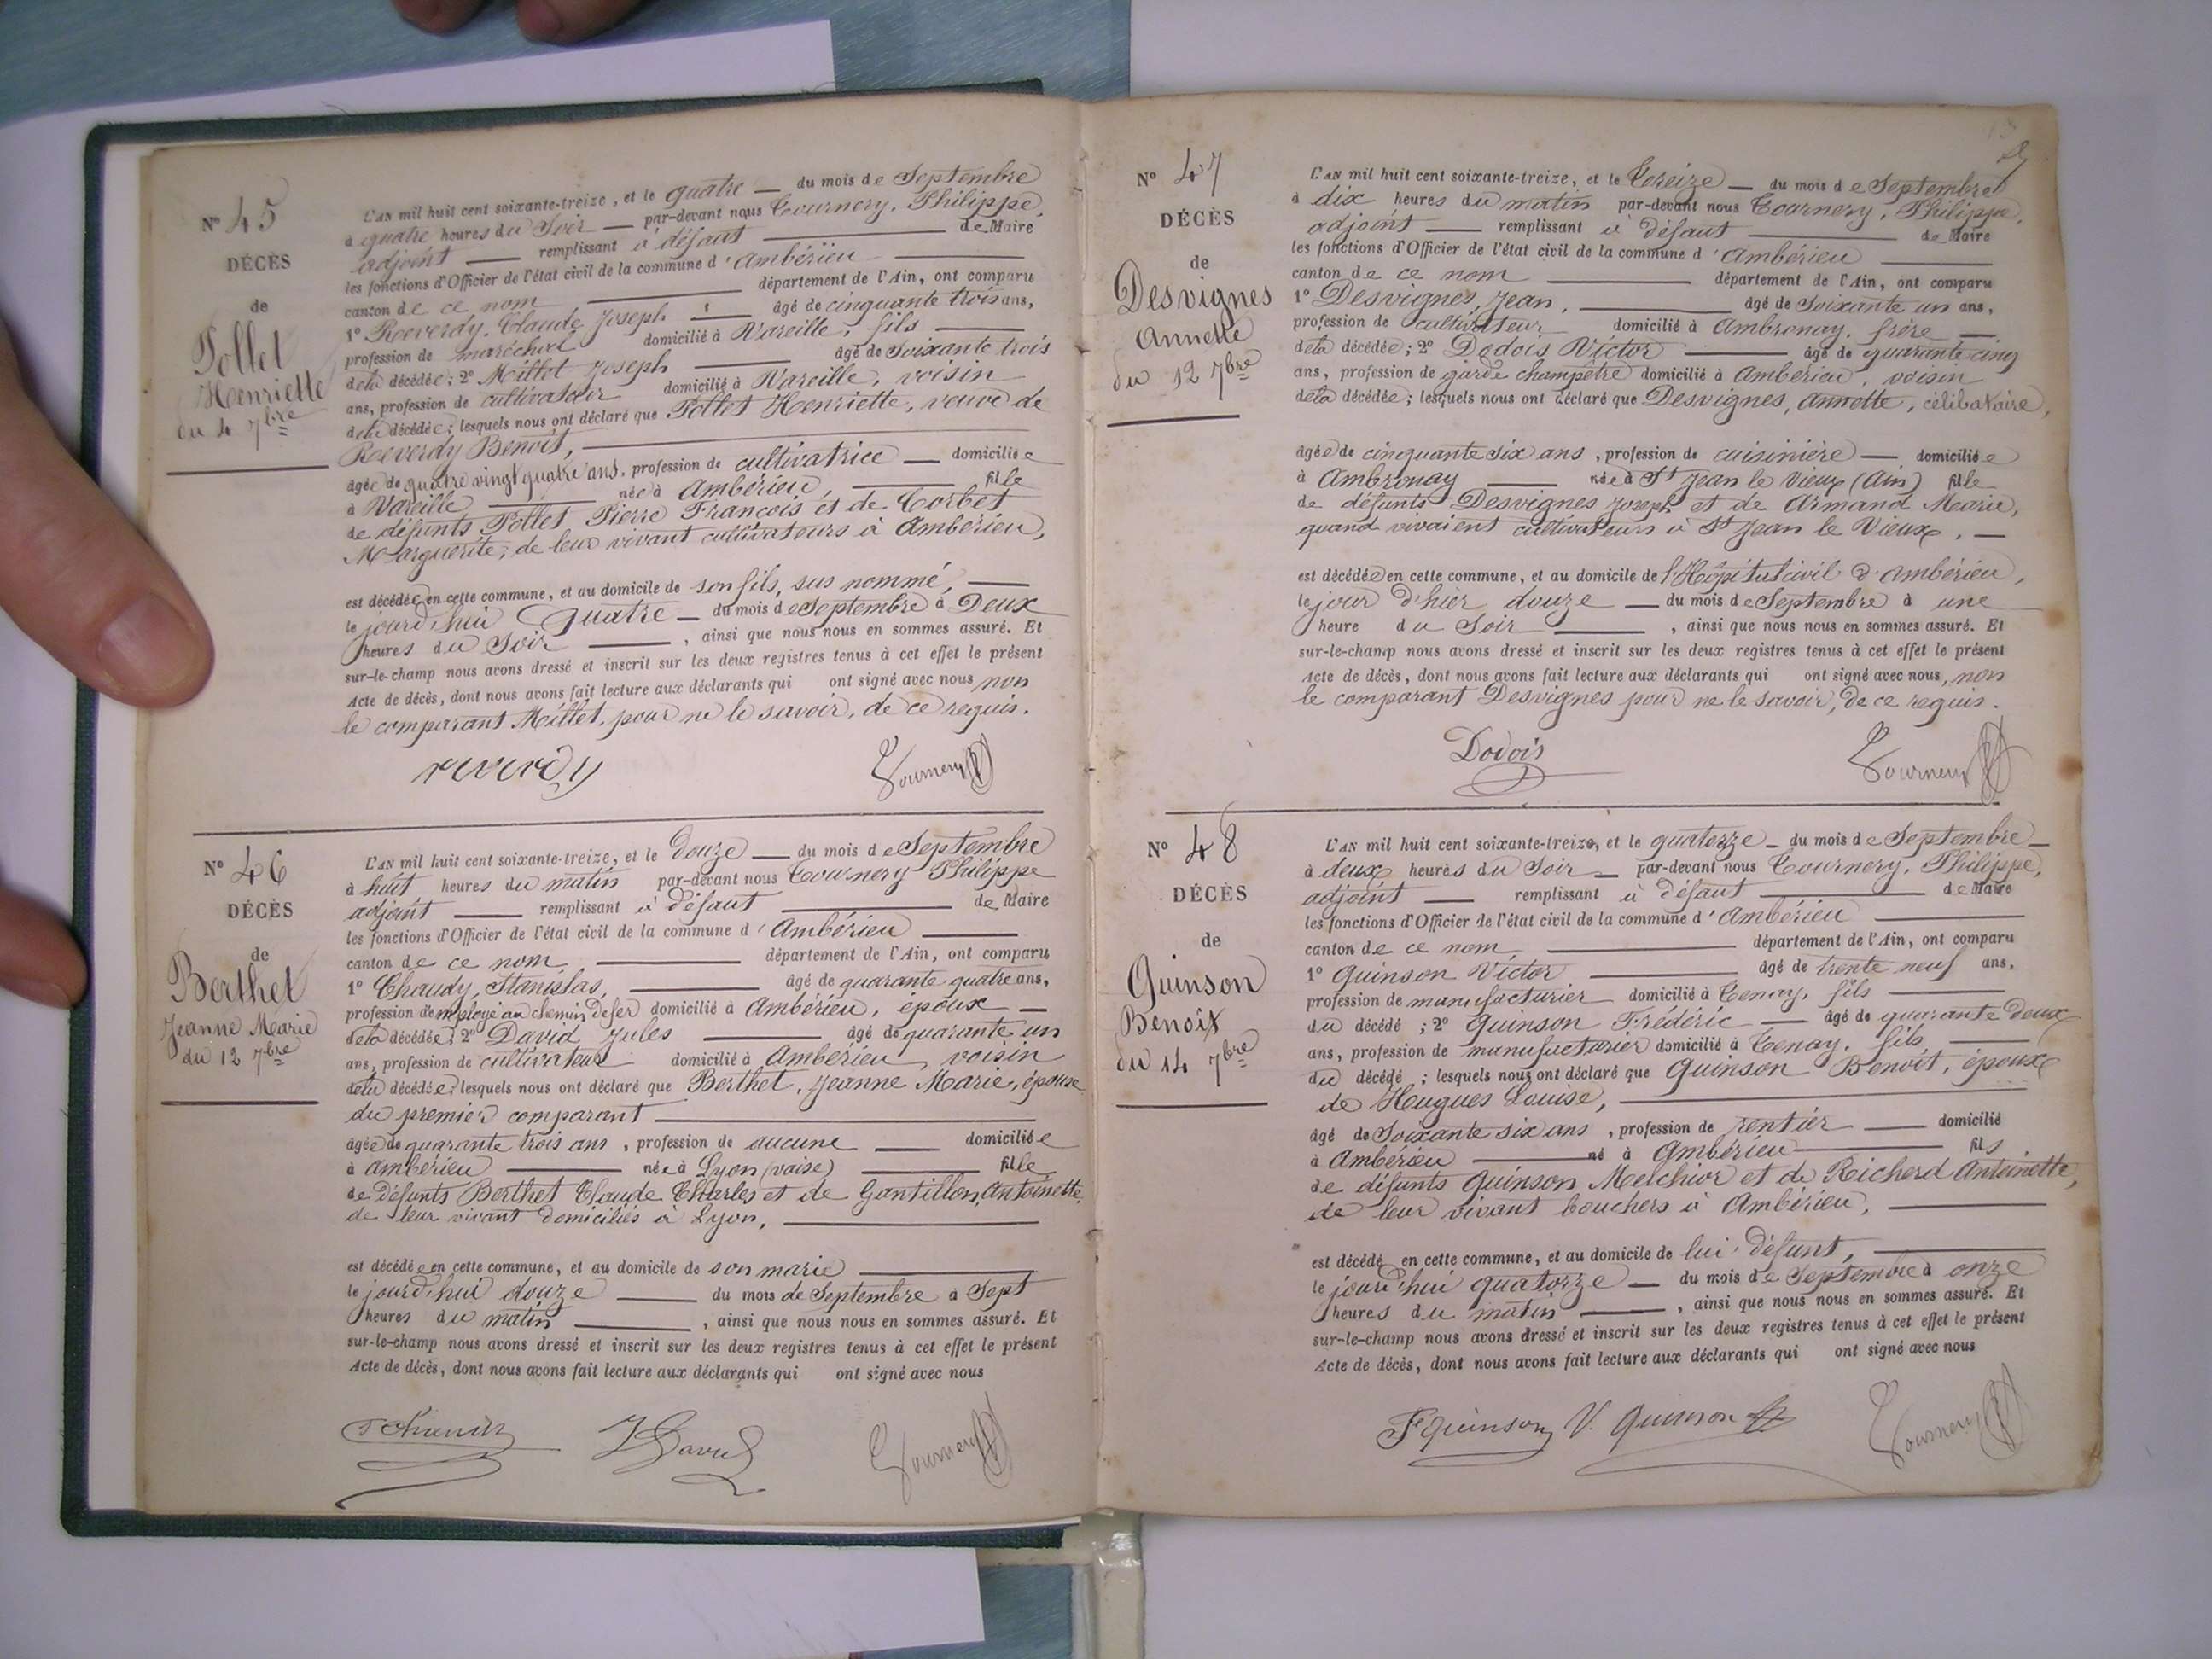 N° 45
DÉCÈS
de
Pollet
Henriette
du 4 7bre
L'AN mil huit cent soixante-treize, et le quatre — du mois de Septembre
à quatre heures du Soir — par-devant nous Tournery, Philippe,
adjoint — remplissant à défaut — de Maire
les fonctions d'Officier de l'état civil de la commune d'Ambérieu —
canton de ce nom — département de l'Ain, ont comparu
1° Reverdy, Claude Joseph — âgé de cinquante trois ans,
profession de maréchal domicilié à Vareille, fils —
de la décédée; 2° Millet Joseph — âgé de Soixante trois
ans, profession de cultivateur domicilié à Vareille, voisin
de la décédée; lesquels nous ont déclaré que Pollet Henriette, veuve de
Reverdy Benoit, —
âgée de quatre vingt quatre ans, profession de cultivatrice — domiciliée
à Vareille — née à Ambérieu, — fille
de défunts Pollet Pierre François et de Corbet
Marguerite, de leur vivant cultivateurs à Ambérieu,
est décédée en cette commune, et au domicile de son fils, sus nommé, —
le jourd'hui Quatre — du mois de Septembre à Deux
heures du Soir —, ainsi que nous nous en sommes assuré. Et
sur-le-champ nous avons dressé et inscrit sur les deux registres tenus à cet effet le présent
Acte de décès, dont nous avons fait lecture aux déclarants qui ont signé avec nous non
le comparant Millet, pour ne le savoir, de ce requis.
reverdy Tournery
N° 46
DÉCÈS
de
Berthet
Jeanne Marie
du 12 7bre
L'AN mil huit cent soixante-treize, et le douze — du mois de Septembre
à huit heures du matin par-devant nous Tournery Philippe
adjoint — remplissant à défaut — de Maire
les fonctions d'Officier de l'état civil de la commune d'Ambérieu —
canton de ce nom — département de l'Ain, ont comparu
1° Chaudy, Stanislas, — âgé de quarante quatre ans,
profession d'employé au chemin de fer domicilié à Ambérieu, époux —
de la décédée; 2° David Jules — âgé de quarante un
ans, profession de cultivateur domicilié à Ambérieu, voisin
de la décédée; lesquels nous ont déclaré que Berthet, Jeanne Marie, épouse
du premier comparant —
âgée de quarante trois ans, profession de aucune — domiciliée
à Ambérieu — née à Lyon (vaise) — fille
de défunts Berthet Claude Charles et de Gantillon, Antoinette,
de leur vivant domiciliés à Lyon, —
est décédée en cette commune, et au domicile de son marie —
le jourd'hui douze — du mois de Septembre à Sept
heures du matin —, ainsi que nous nous en sommes assuré. Et
sur-le-champ nous avons dressé et inscrit sur les deux registres tenus à cet effet le présent
Acte de décès, dont nous avons fait lecture aux déclarants qui ont signé avec nous
J David Tournery
N° 47
DÉCÈS
de
Desvignes
Annette
du 12 7bre
L'AN mil huit cent soixante-treize, et le Treize — du mois de Septembre
à dix heures du matin par-devant nous Tournery, Philippe,
adjoint — remplissant à défaut — de Maire
les fonctions d'Officier de l'état civil de la commune d'Ambérieu —
canton de ce nom — département de l'Ain, ont comparu
1° Desvignes, Jean, — âgé de Soixante un ans,
profession de cultivateur domicilié à Ambronay, frère —
de la décédée; 2° Dodois Victor — âgé de quarante cinq
ans, profession de garde champêtre domicilié à Ambérieu, voisin
de la décédée; lesquels nous ont déclaré que Desvignes, Annette, célibataire,
âgée de cinquante six ans, profession de cuisinière — domiciliée
à Ambronay — née à St Jean le Vieux (Ain) fille
de défunts Desvignes Joseph et de Armand Marie,
quand vivaient cultivateurs à St Jean le Vieux, —
est décédée en cette commune, et au domicile de l'Hôpital civil d'Ambérieu,
le jour d'hier douze — du mois de Septembre à une
heure du Soir —, ainsi que nous nous en sommes assuré. Et
sur-le-champ nous avons dressé et inscrit sur les deux registres tenus à cet effet le présent
Acte de décès, dont nous avons fait lecture aux déclarants qui ont signé avec nous, non
le comparant Desvignes pour ne le savoir, de ce requis.
Dodois Tournery
N° 48
DÉCÈS
de
Quinson
Benoît
du 14 7bre
L'AN mil huit cent soixante-treize, et le quatorze — du mois de Septembre —
à deux heures du Soir — par-devant nous Tournery, Philippe,
adjoint — remplissant à défaut — de Maire
les fonctions d'Officier de l'état civil de la commune d'Ambérieu —
canton de ce nom — département de l'Ain, ont comparu
1° Quinson Victor — âgé de trente neuf ans,
profession de manufacturier domicilié à Tenay, fils —
du décédé; 2° Quinson Frédéric — âgé de quarante deux
ans, profession de manufacturier domicilié à Tenay, fils —
du décédé; lesquels nous ont déclaré que Quinson Benoît, époux
de Hugues Louise, —
âgé de Soixante six ans, profession de rentier — domicilié
à Ambérieu — né à Ambérieu — fils
de défunts Quinson Melchior et de Richerd Antoinette,
de leur vivant bouchers à Ambérieu, —
est décédé en cette commune, et au domicile de lui défunt, —
le jourd'hui quatorze — du mois de Septembre à onze
heures du matin —, ainsi que nous nous en sommes assuré. Et
sur-le-champ nous avons dressé et inscrit sur les deux registres tenus à cet effet le présent
Acte de décès, dont nous avons fait lecture aux déclarants qui ont signé avec nous
F quinson V. quinson Tournery